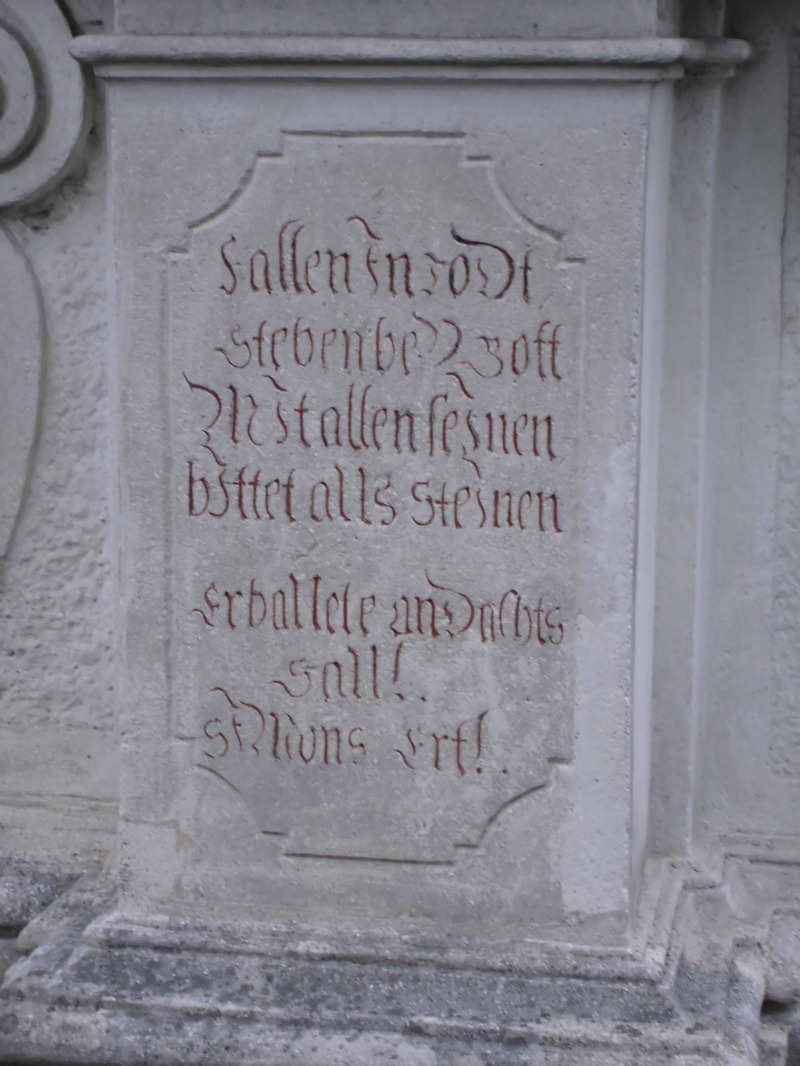 fallen Jn todt
stebenber Zoff
Mit allen seinen
bittet alls steinen
Erballete anDachts
sall!.
simons Ertl.